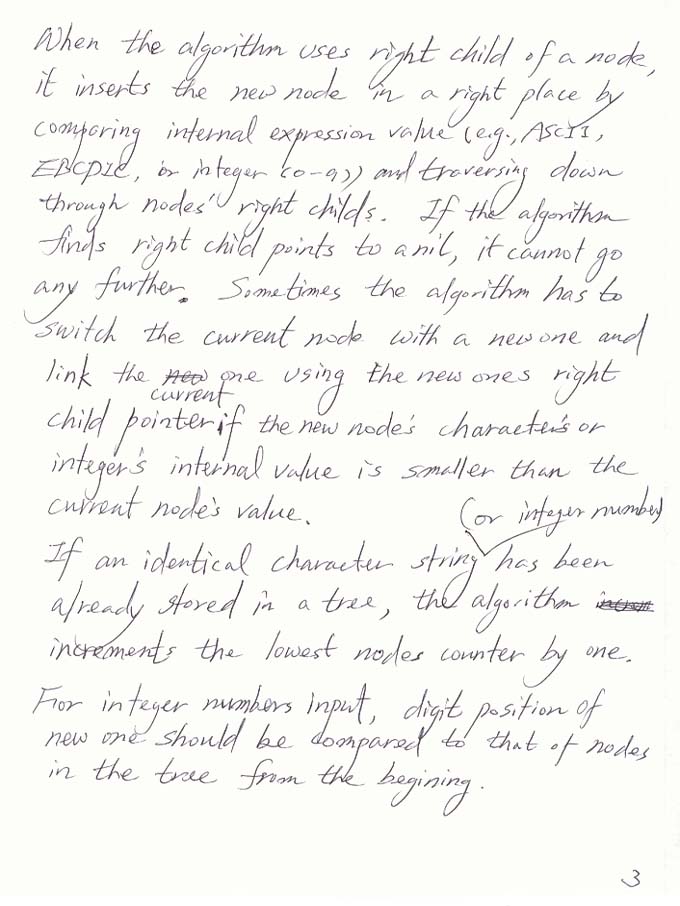 When the algorithm uses right child of a node,
it inserts the new node in a right place by
comparing internal expression value (e.g., ASCII,
EBCDIC, or integer (0-9)) and traversing down
through nodes' right childs. If the algorithm
finds right child points to a nil, it cannot go
any further. Sometimes the algorithm has to
switch the current node with a new one and
link the new one using the new ones right
current
child pointer if the new node's character's or
integer's internal value is smaller than the
current node's value.
(or integer number)
If an identical character string has been
already stored in a tree, the algorithm
increments the lowest nodes counter by one.
For integer numbers input, digit position of
new one should be compared to that of nodes
in the tree from the begining.
3